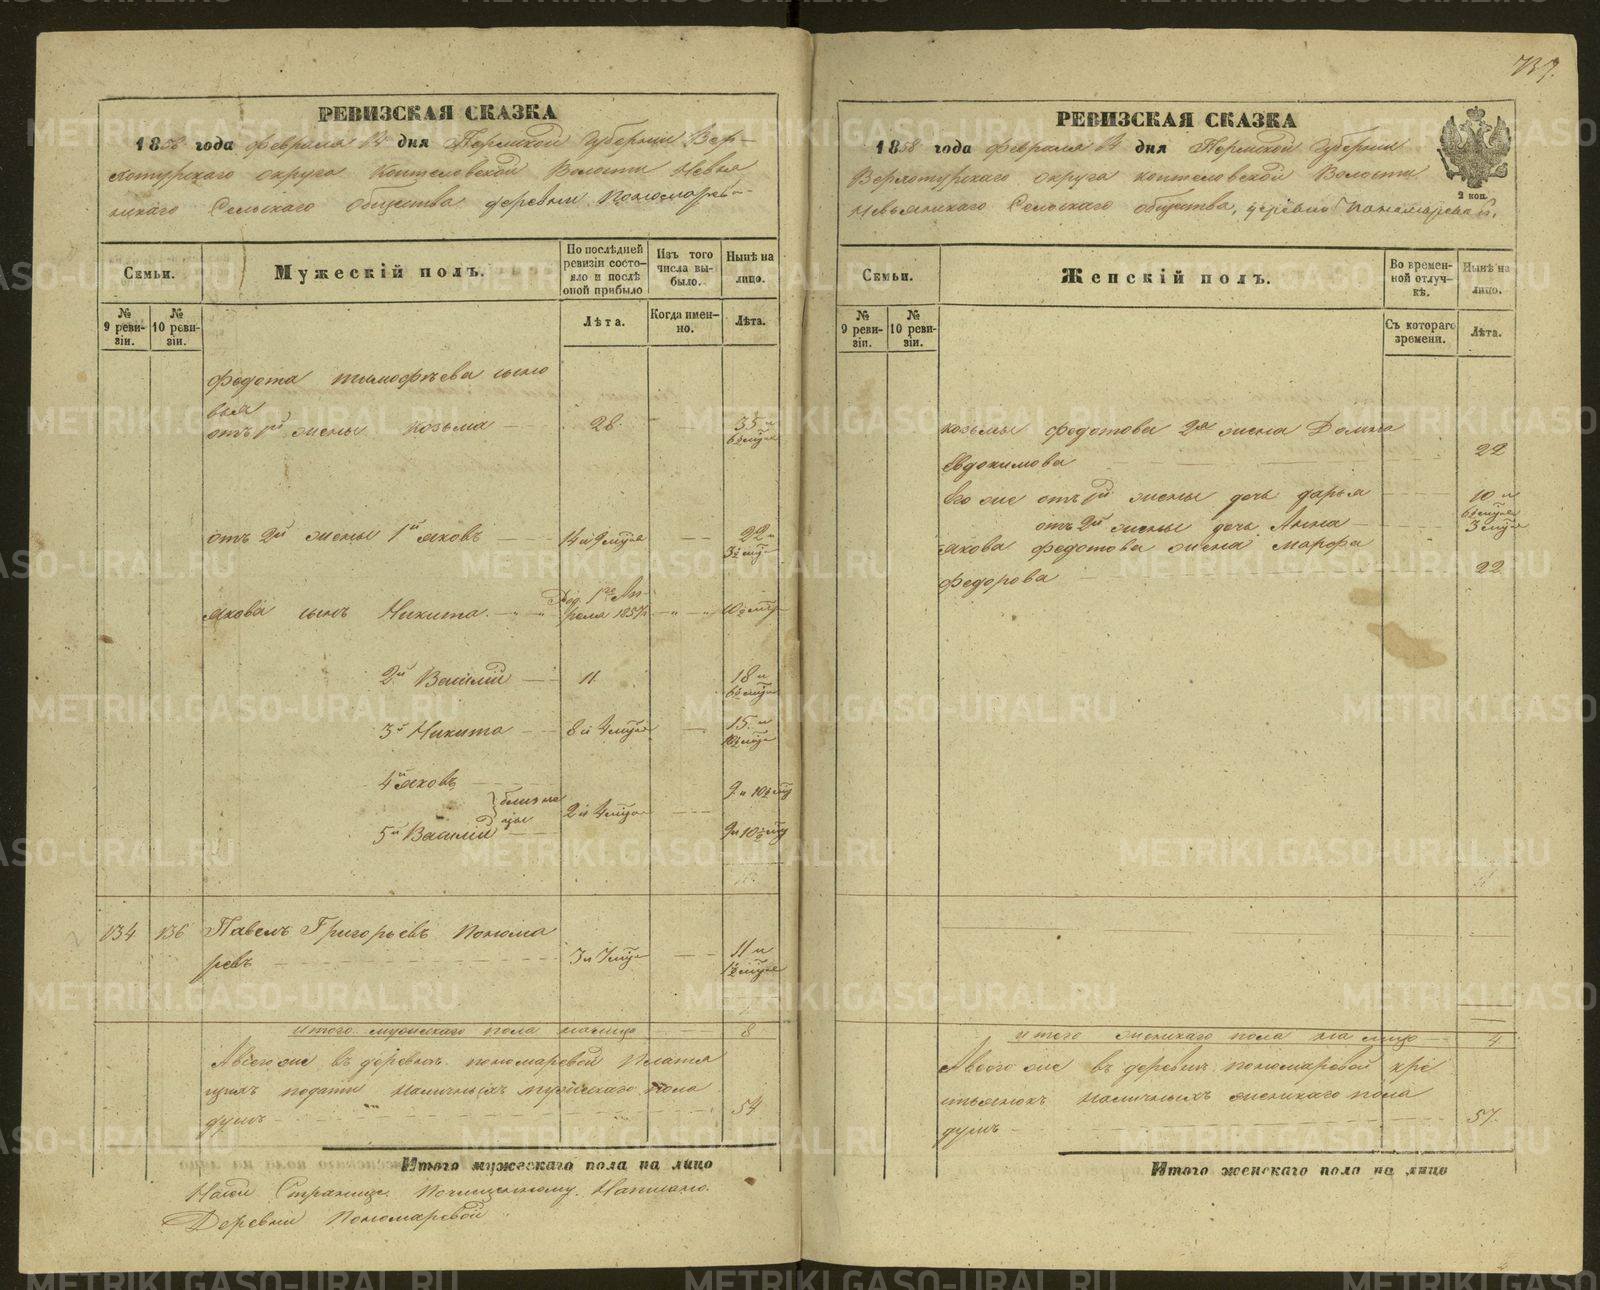 737.
РЕВИЗСКАЯ СКАЗКА
1858 года февраля дня Пермской Губернии Вер-
хотурскаго округа Коптеловской Волости Невья
нскаго Сельскаго Общества деревни Пономарево-
Семьи.
Мужескій полъ.
По послѣдней ревизіи состояло и послѣ оной прибыло
Изъ того числа выбыло.
Нынѣ на лицо.
№ 9 ревизіи.
№ 10 ревизіи.
Лѣта.
Когда именно.
Лѣта.
Федота тимофѣева сыно
вья
отъ 1й жены Козьма 28. 35 и
отъ 2й жены 1й яковъ 14 и 9 22 и
якова сынъ Никита Род. 1го Ап-
реля 1857
2й Василій 11 18 и
3й Никита 8 и 4 15 и
4й яковъ 9 и 10
близне
цы 2 и 4
5й Василій 9 и 10
134 136 Павелъ Григорьевъ Понома
ревъ 3 и 7 11 и
итого мужескаго пола налицо 8
А всего же въ деревнѣ пономаревой Платя
щихъ подати наличныхъ мужескаго пола
душъ 54
Итого мужескаго пола на лицо
На сей Странице По чищенному Написано
Деревни Пономаревой
РЕВИЗСКАЯ СКАЗКА
1858 года февраля дня Пермской Губернии
Верхотурскаго округа коптеловской Волости
Невьянскаго Сельскаго общества, деревни Пономаревой.
2 коп.
Семьи.
Женскій полъ.
Во временной отлучкѣ.
Нынѣ на лицо.
№ 9 ревизіи.
№ 10 ревизіи.
Съ котораго времени.
Лѣта.
козьмы федотова 2я жена Домна
Евдокимова
Его же отъ 1й жены дочь дарья 10 и
отъ 2й жены дочь Анна 3
якова федотова жена марфа
федорова 22
итого женскаго пола на лицо 4
А всего же въ деревнѣ пономаровой кре
стьянокъ наличныхъ женскаго пола
душъ 57.
Итого женскаго пола на лицо
METRIKI.GASO-URAL.RU